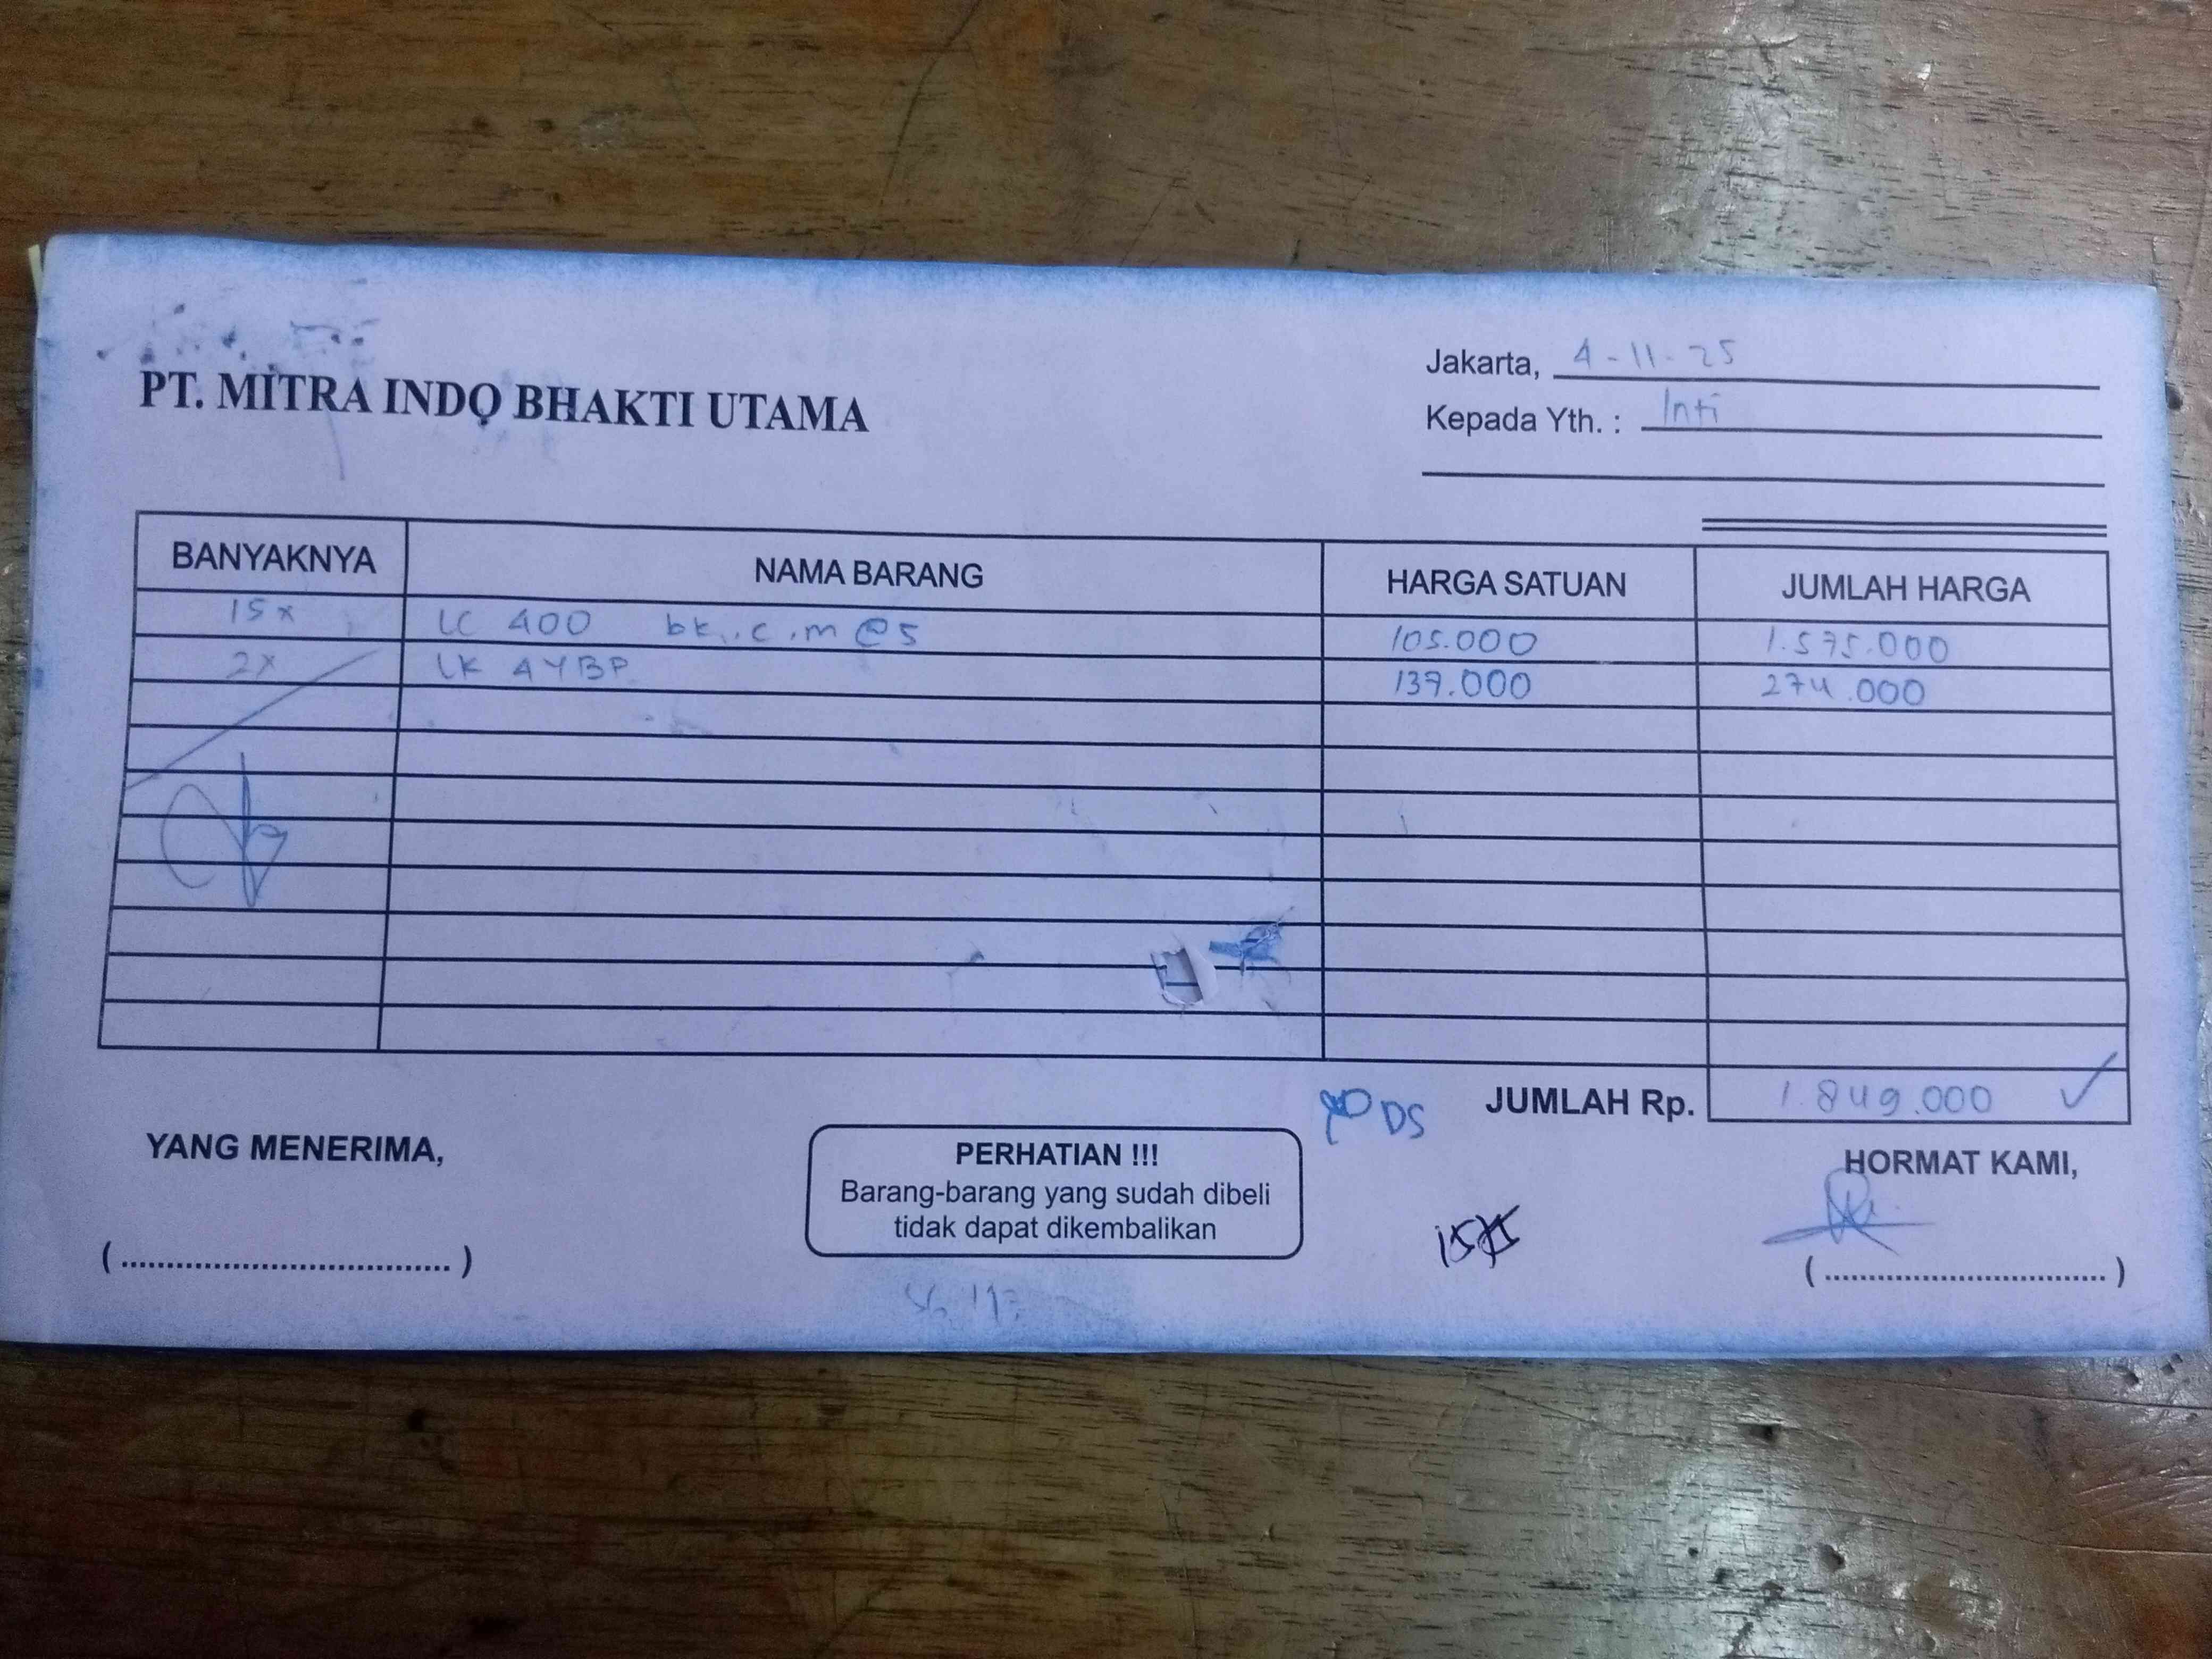 PT. MITRA INDO BHAKTI UTAMA
Jakarta, 4-11-25
Kepada Yth. : Inti
BANYAKNYA NAMA BARANG HARGA SATUAN JUMLAH HARGA
15x LC 400 bk,.c,m @5 105.000 1.575.000
2x LK 4YBP 137.000 274.000
DS JUMLAH Rp. 1.849.000 ✓
YANG MENERIMA,
PERHATIAN !!!
Barang-barang yang sudah dibeli
tidak dapat dikembalikan
HORMAT KAMI,
(....................................)
(....................................)